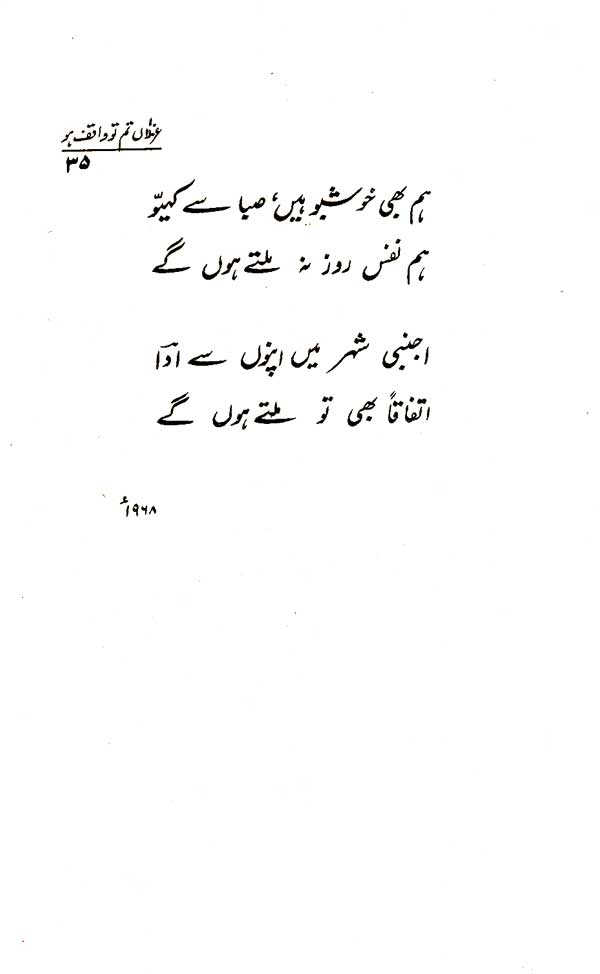 غزالاں تم تو واقف ہو
۳۵
ہم بھی خوشبو ہیں، صبا سے کہیوّ
ہم نفس روز نہ ملتے ہوں گے
اجنبی شہر میں اپنوں سے اداؔ
اتفاقاً بھی تو ملتے ہوں گے
۱۹۶۸ء